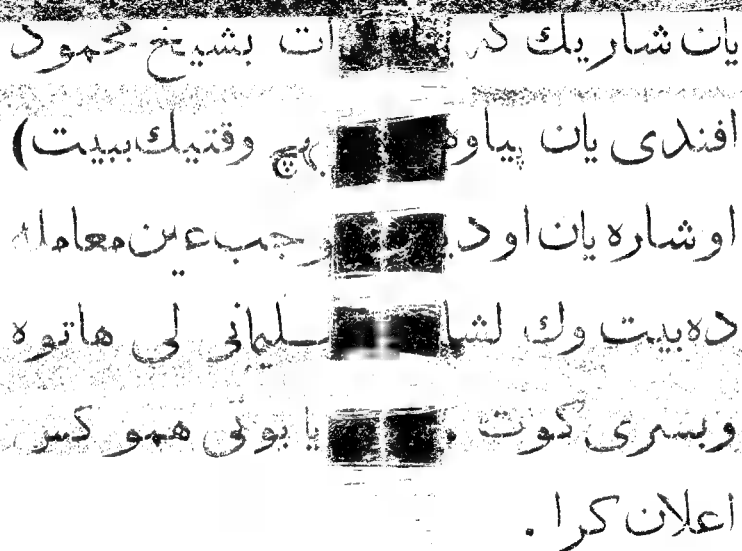 یان شاریك ات بشیخ محمود
افندی یان پیاوه هیچ وقتیك ببیت)
اوشاره یان او وجب عین معامله
ده‌بیت وك لشا سلیمانی لی هاتوه
وبسری كوت یا بوئی همو كس
اعلان كرا .